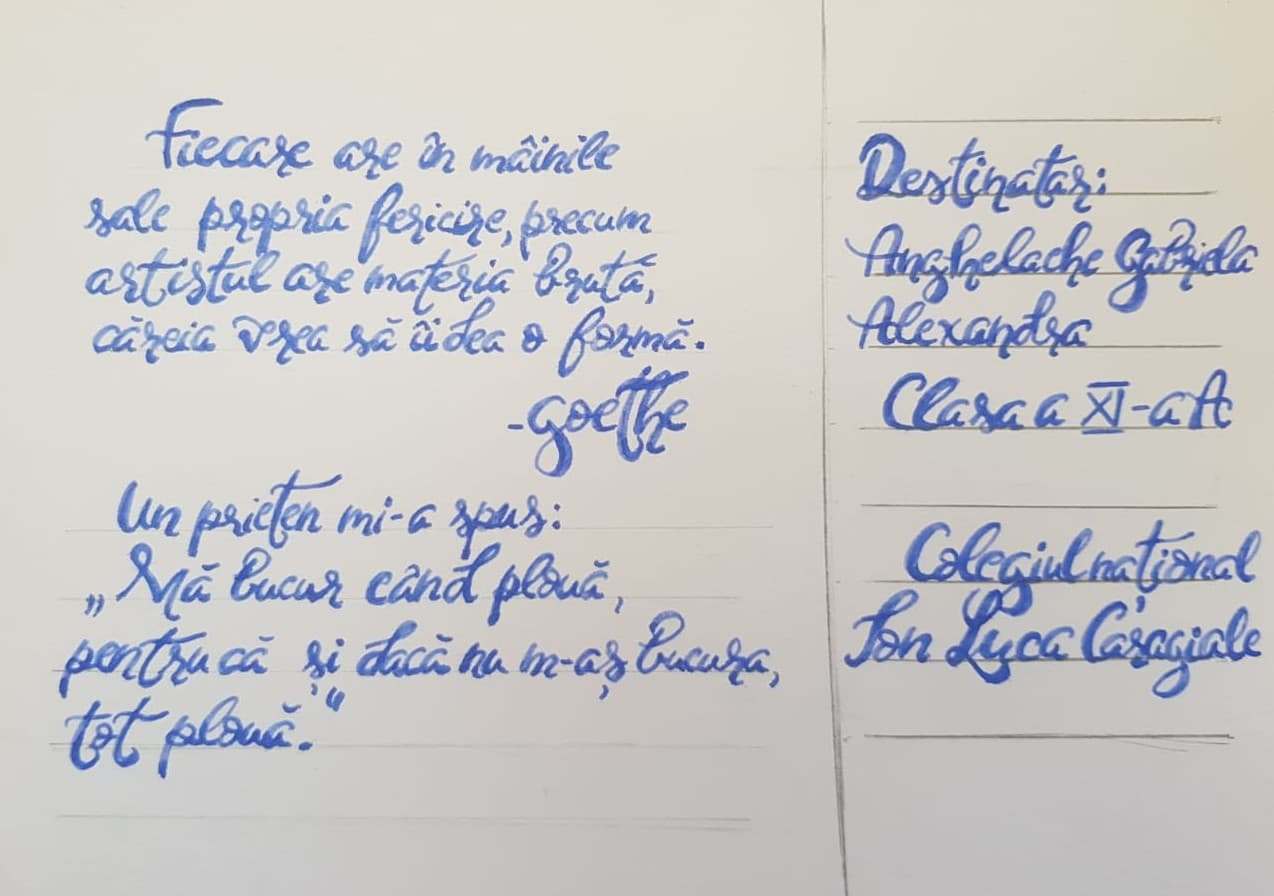 Fiecare are în mâinile
sale propria fericire, precum
artistul are materia brută,
căreia vrea să îi dea o formă.
-Goethe
Un prieten mi-a spus:
„Mă bucur când plouă,
pentru că și dacă nu m-aș bucura,
tot plouă.“
Destinatar:
Anghelache Gabriela
Alexandra
Clasa a XI-a A
Colegiul național
Ion Luca Caragiale